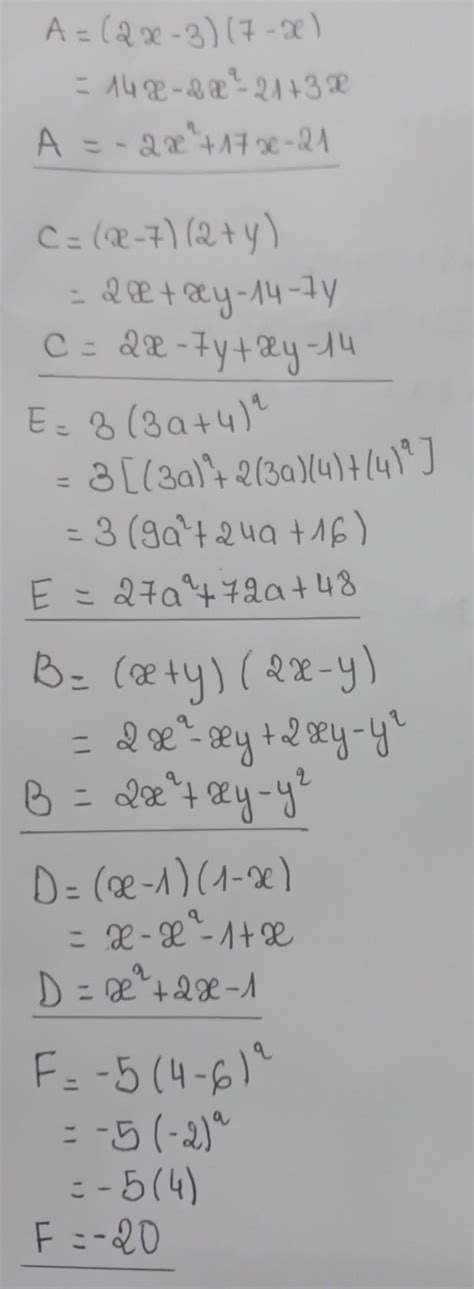 A = (2x-3)(7-x)
= 14x-2x²-21+3x
A = -2x²+17x-21
C = (x-7)(2+y)
= 2x+xy-14-7y
C = 2x-7y+xy-14
E = 3(3a+4)²
= 3[(3a)²+2(3a)(4)+(4)²]
= 3(9a²+24a+16)
E = 27a²+72a+48
B = (x+y)(2x-y)
= 2x²-xy+2xy-y²
B = 2x²+xy-y²
D = (x-1)(1-x)
= x-x²-1+x
D = x²+2x-1
F = -5(4-6)²
= -5(-2)²
= -5(4)
F = -20